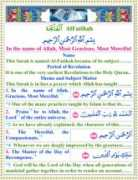 AlFatihah
الفاتحة
بِسْمِ اللَّهِ الرَّحْمَٰنِ الرَّحِيمِ
In the name of Allah, Most Gracious, Most Merciful.
Name
This Surah is named Al-Fatihah because of its subject-
Period of Revelation
It is one of the very earliest Revelations to the Holy
Theme and Subject Matter
This Surah is in fact a prayer which Allah has taught
1. In the name of Allah, Most Gracious, Most Merciful.
One of the many practices taught by Islam is that its
2. Praise be to Allah, the Lord of the entire universe.
As we have already explained, the character of this
3. The Merciful, the Compassionate,
Whenever we are deeply impressed by the greatness
4. The Master of the Day of Recompense.
God will be the Lord of the Day when all generations of
mankind gather together in order to render an account